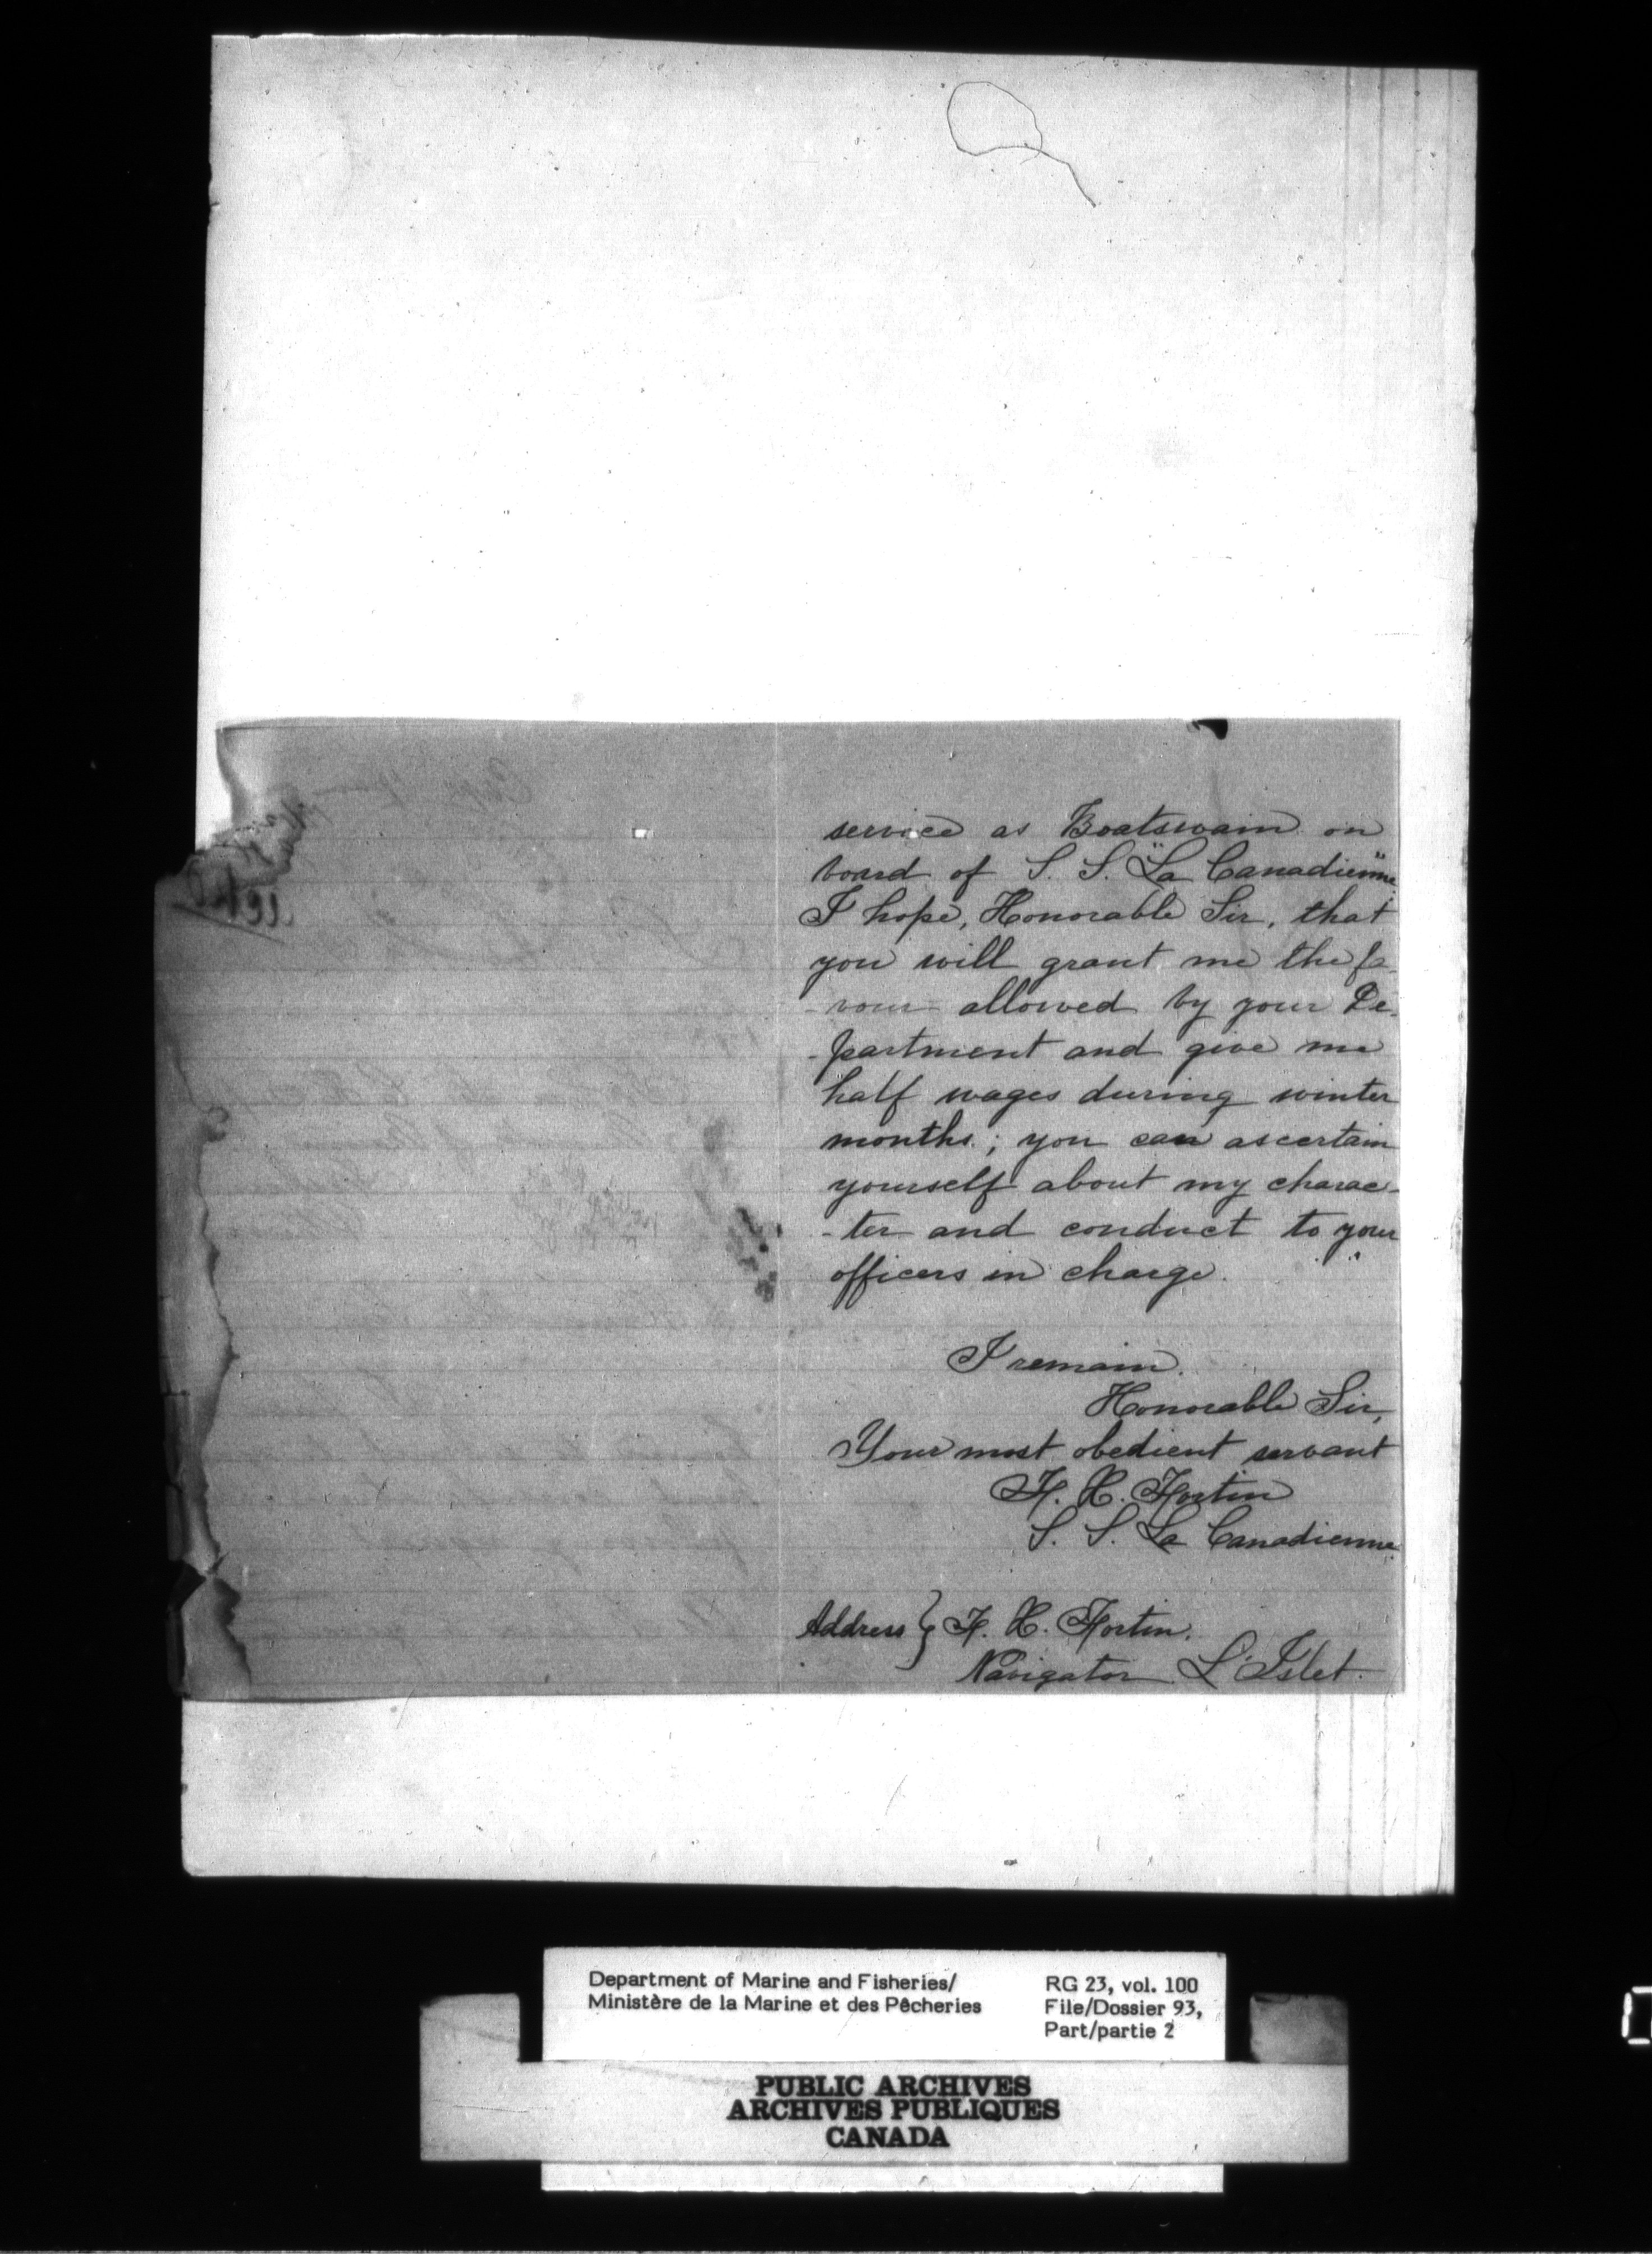 service as Boatswain on
board of S. S. "La Canadienne"
I hope, Honorable Sir, that
you will grant me the fa-
-vour allowed by your De-
-partment and give me
half wages during winter
months; you can ascertain
yourself about my charac-
-ter and conduct to your
officers in charge.
I remain.
Honorable Sir,
Your most obedient servant
F. X. Fortin
S. S. La Canadienne.
Address } F. X. Fortin.
Navigator L'Islet.
Department of Marine and Fisheries/
Ministère de la Marine et des Pêcheries
RG 23, vol. 100
File/Dossier 93,
Part/partie 2
PUBLIC ARCHIVES
ARCHIVES PUBLIQUES
CANADA